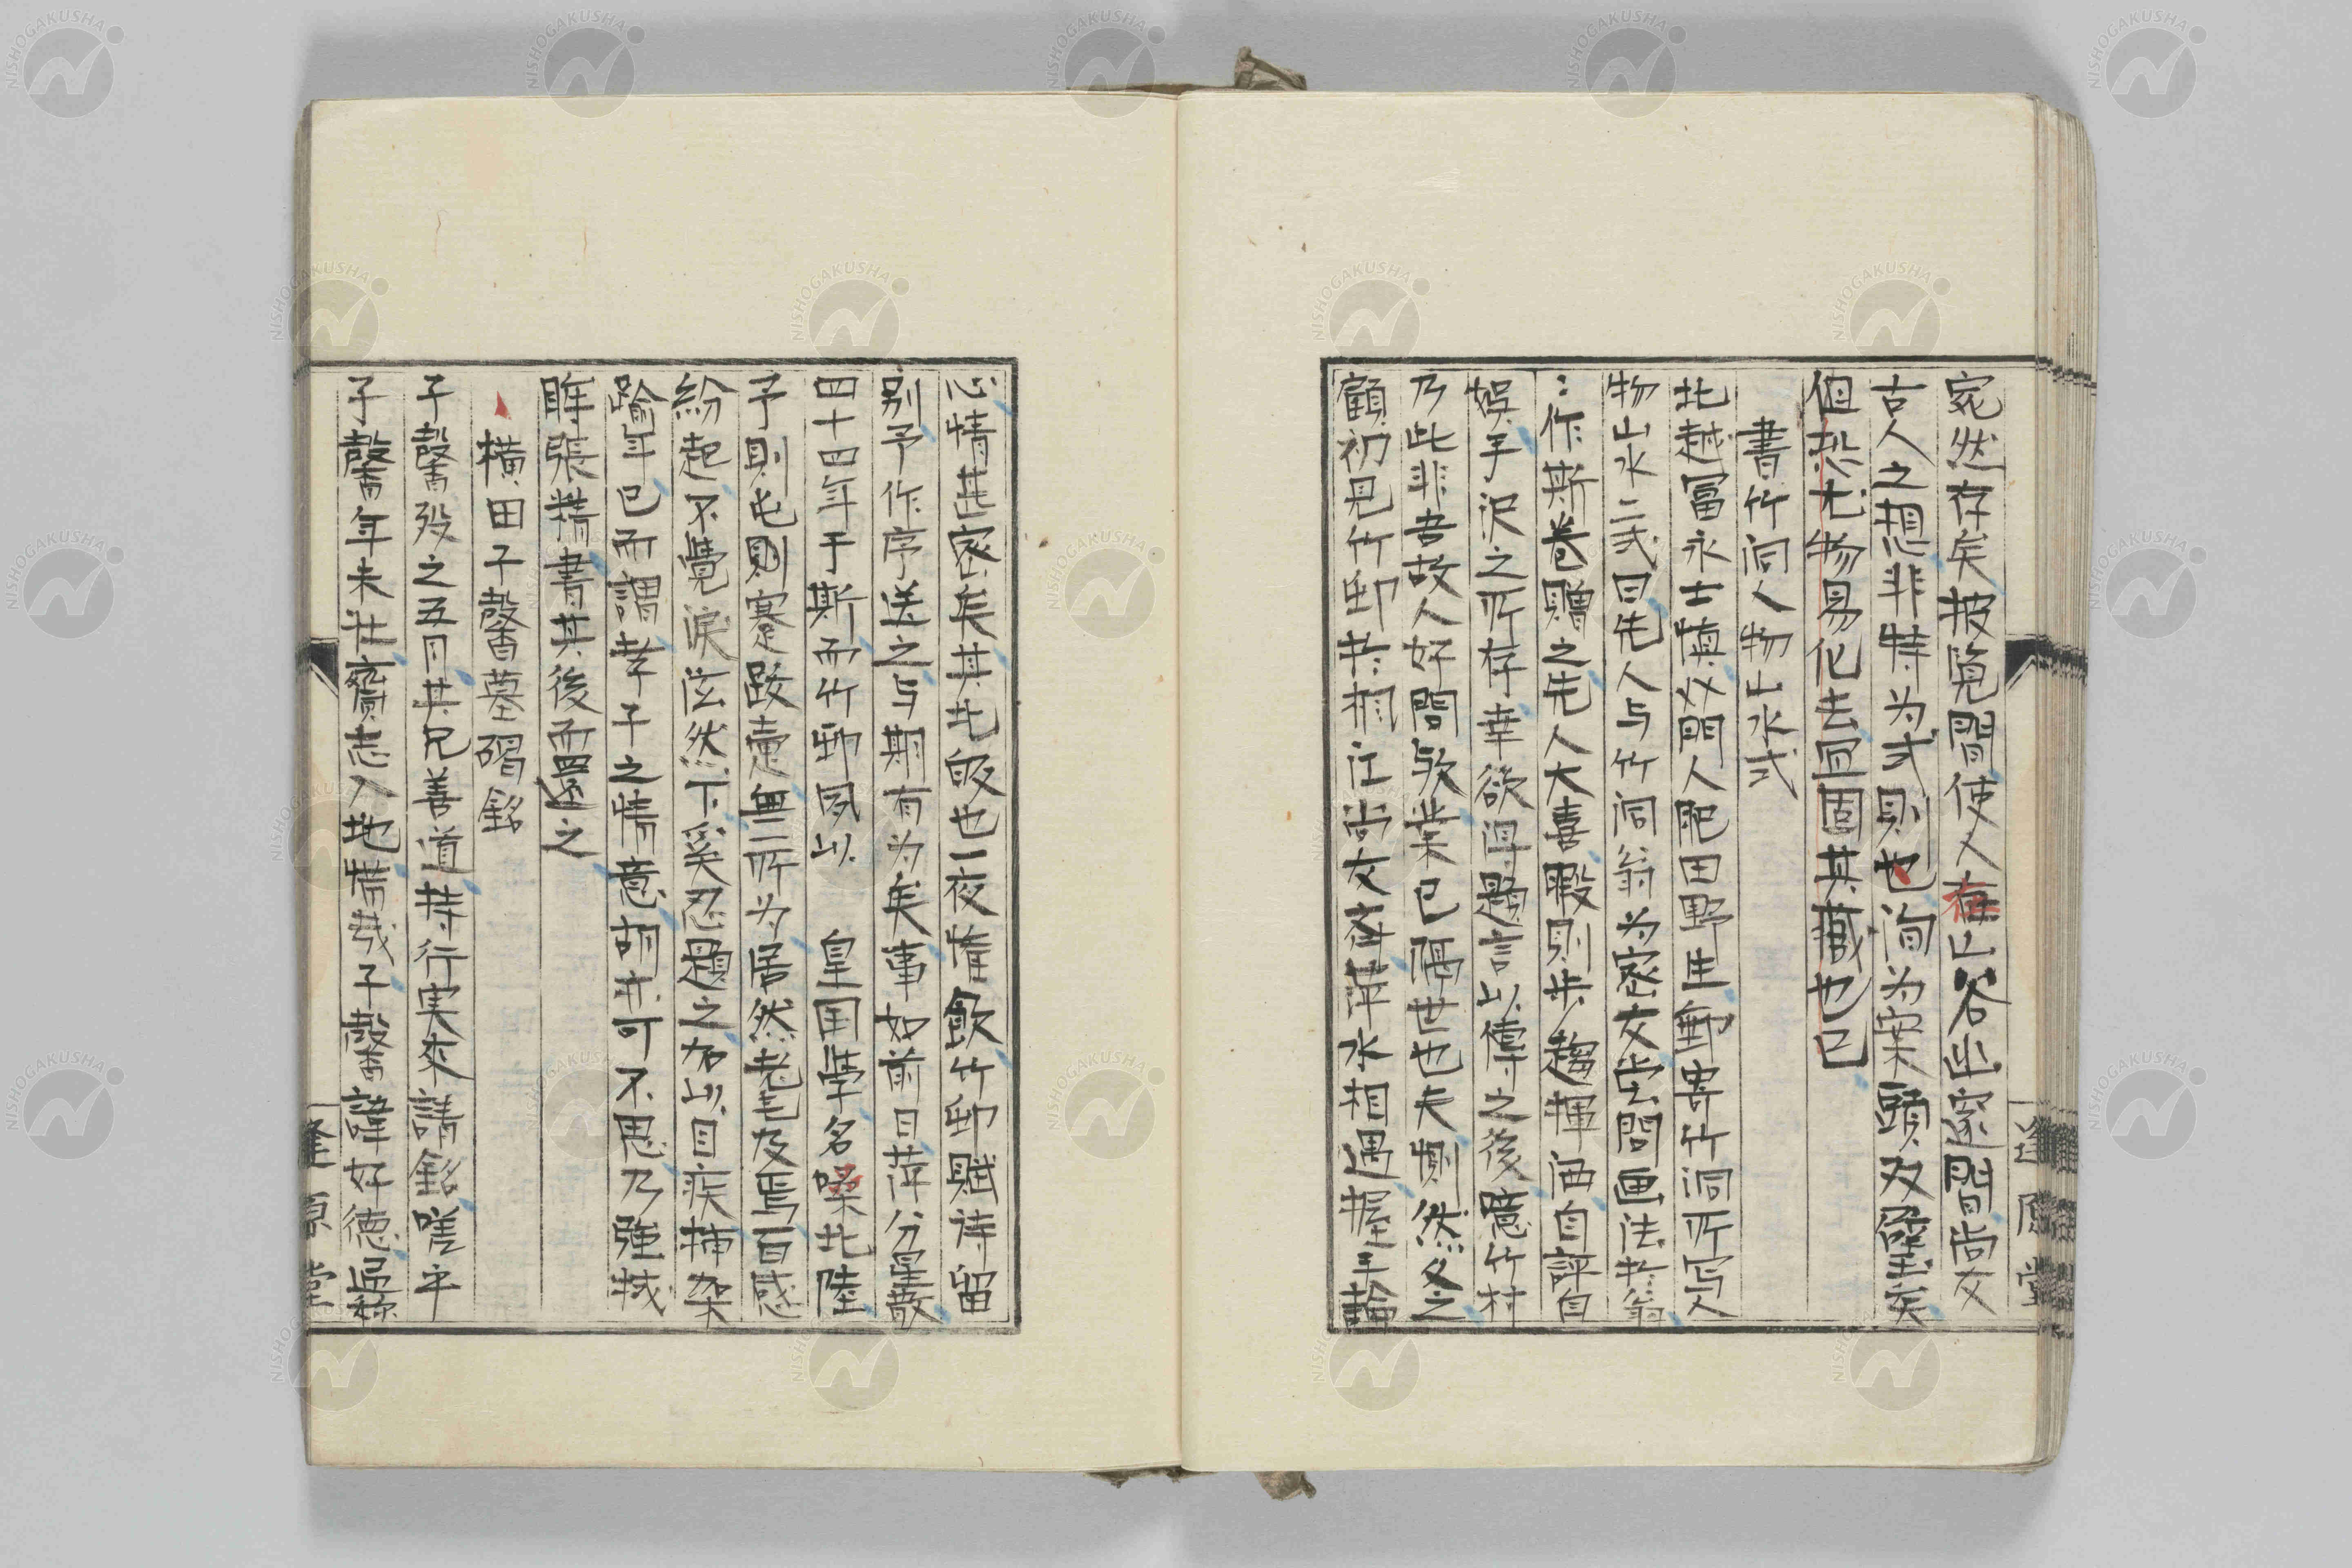 宛然存矣披覧間使人在山谷幽邃間尚友
古人之想非特为式則也洵为案頭双璧矣
但恐尤物易化去宜固其蔵也已
書竹洞人物山水式
北越冨永士慎父門人肥田野生郵寄竹洞所写人
物山水二式曰先人与竹洞翁为密友嘗問画法於翁
々作斯巻贈之先人大喜暇則步趨揮洒自評自
娯手沢之所存幸欲得題言以傳之後憶竹村
乃此非吾故人好問欤業已隔世也夫惻然久之
顧初見竹邨於桐江尚友斎萍水相遇握手論
心情甚密矣其北皈也一夜惰飲竹邨賦詩留
別予作序送之与期有为矣事如前日萍分星散
四十四年于斯而竹邨夙以 皇国学名噪北陸
予則屯則蹇跋疐無所为居然老耄及焉百感
紛起不覚涙泫然下奚忍題之加以目疾捕架
踰年已而謂孝子之情意胡亦可不思乃強拭
眸張精書其後而還之
横田子馨墓碣銘
子馨歿之五月其兄善道持行実来請銘嗟乎
子馨年未壮齎志入地惜哉子馨諱好徳逼称
逢原堂
逢原堂
NISHOGAKUSHA